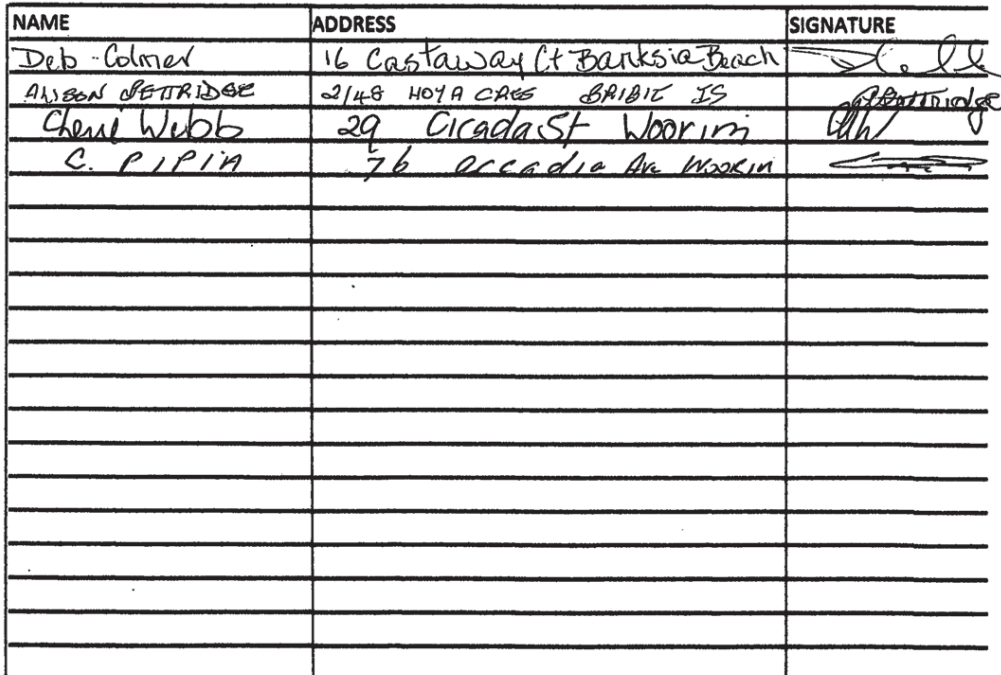 NAME ADDRESS SIGNATURE
Deb Colmer 16 Castaway Ct Banksia Beach
ALISON PETTRIDGE 2/48 HOYA CRES BRIBIE IS
Webb 29 Cicada St Woorim
C. PIPIA 76 arcadia Ave